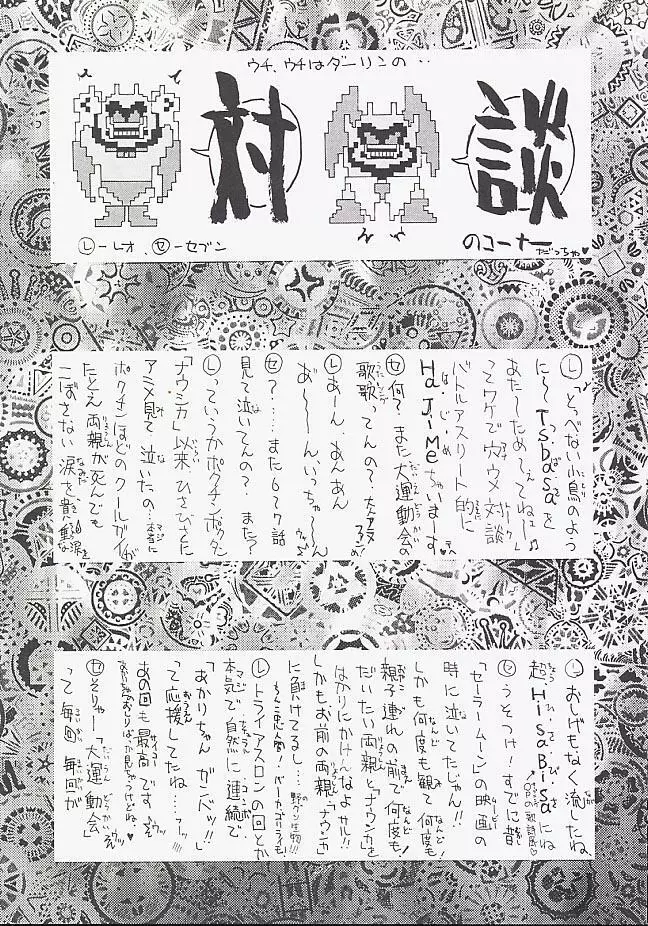 ウチ、ウチはダーリンの‥
対談
Ⓛーレオ、㋝ーセブン
のコーナー
だっちゃ♥
Ⓛ「とべない小鳥のよう
に〜 Tsbasaを
あた〜ためってえねェー♪」
ってワケで 対談
バトルアスリート的に
HaJiMeちゃいまーす♥
㋝何？また大運動会の
歌歌ってんの？
Ⓛあーん、あんあん
あ〜〜んいっちゃ〜〜ん
㋝？……また6て7話
見て泣いてんの？また？
Ⓛっていうかボクチンボクタン
「ナウシカ」以来ひさびさた
アニメ見て泣いたの。本当に
ボクチンほどのクールガイが
たとえ両親が死んでも
こぼさない涙を
Ⓛおしげもなく流したね、
超HiSaBiSaにね
㋝うそつけ！すでに昔
「セーラームーン」の映画の
時に泣いてたじゃん!!
しかも何度も観て何度も！
親子連れの前で何度も！
だいたい両親と「ナウシカ」を
はかりにかけんなよサル!!
しかもお前の両親「ナウシカ」
に負けてるし…
Ⓛトライアスロンの回とか
本気で自然に連続で
「あかりちゃんガンバッ!!」
って応援してたね…
あの回も最高です
㋝そりゃー「大運動会」
って毎回毎回が